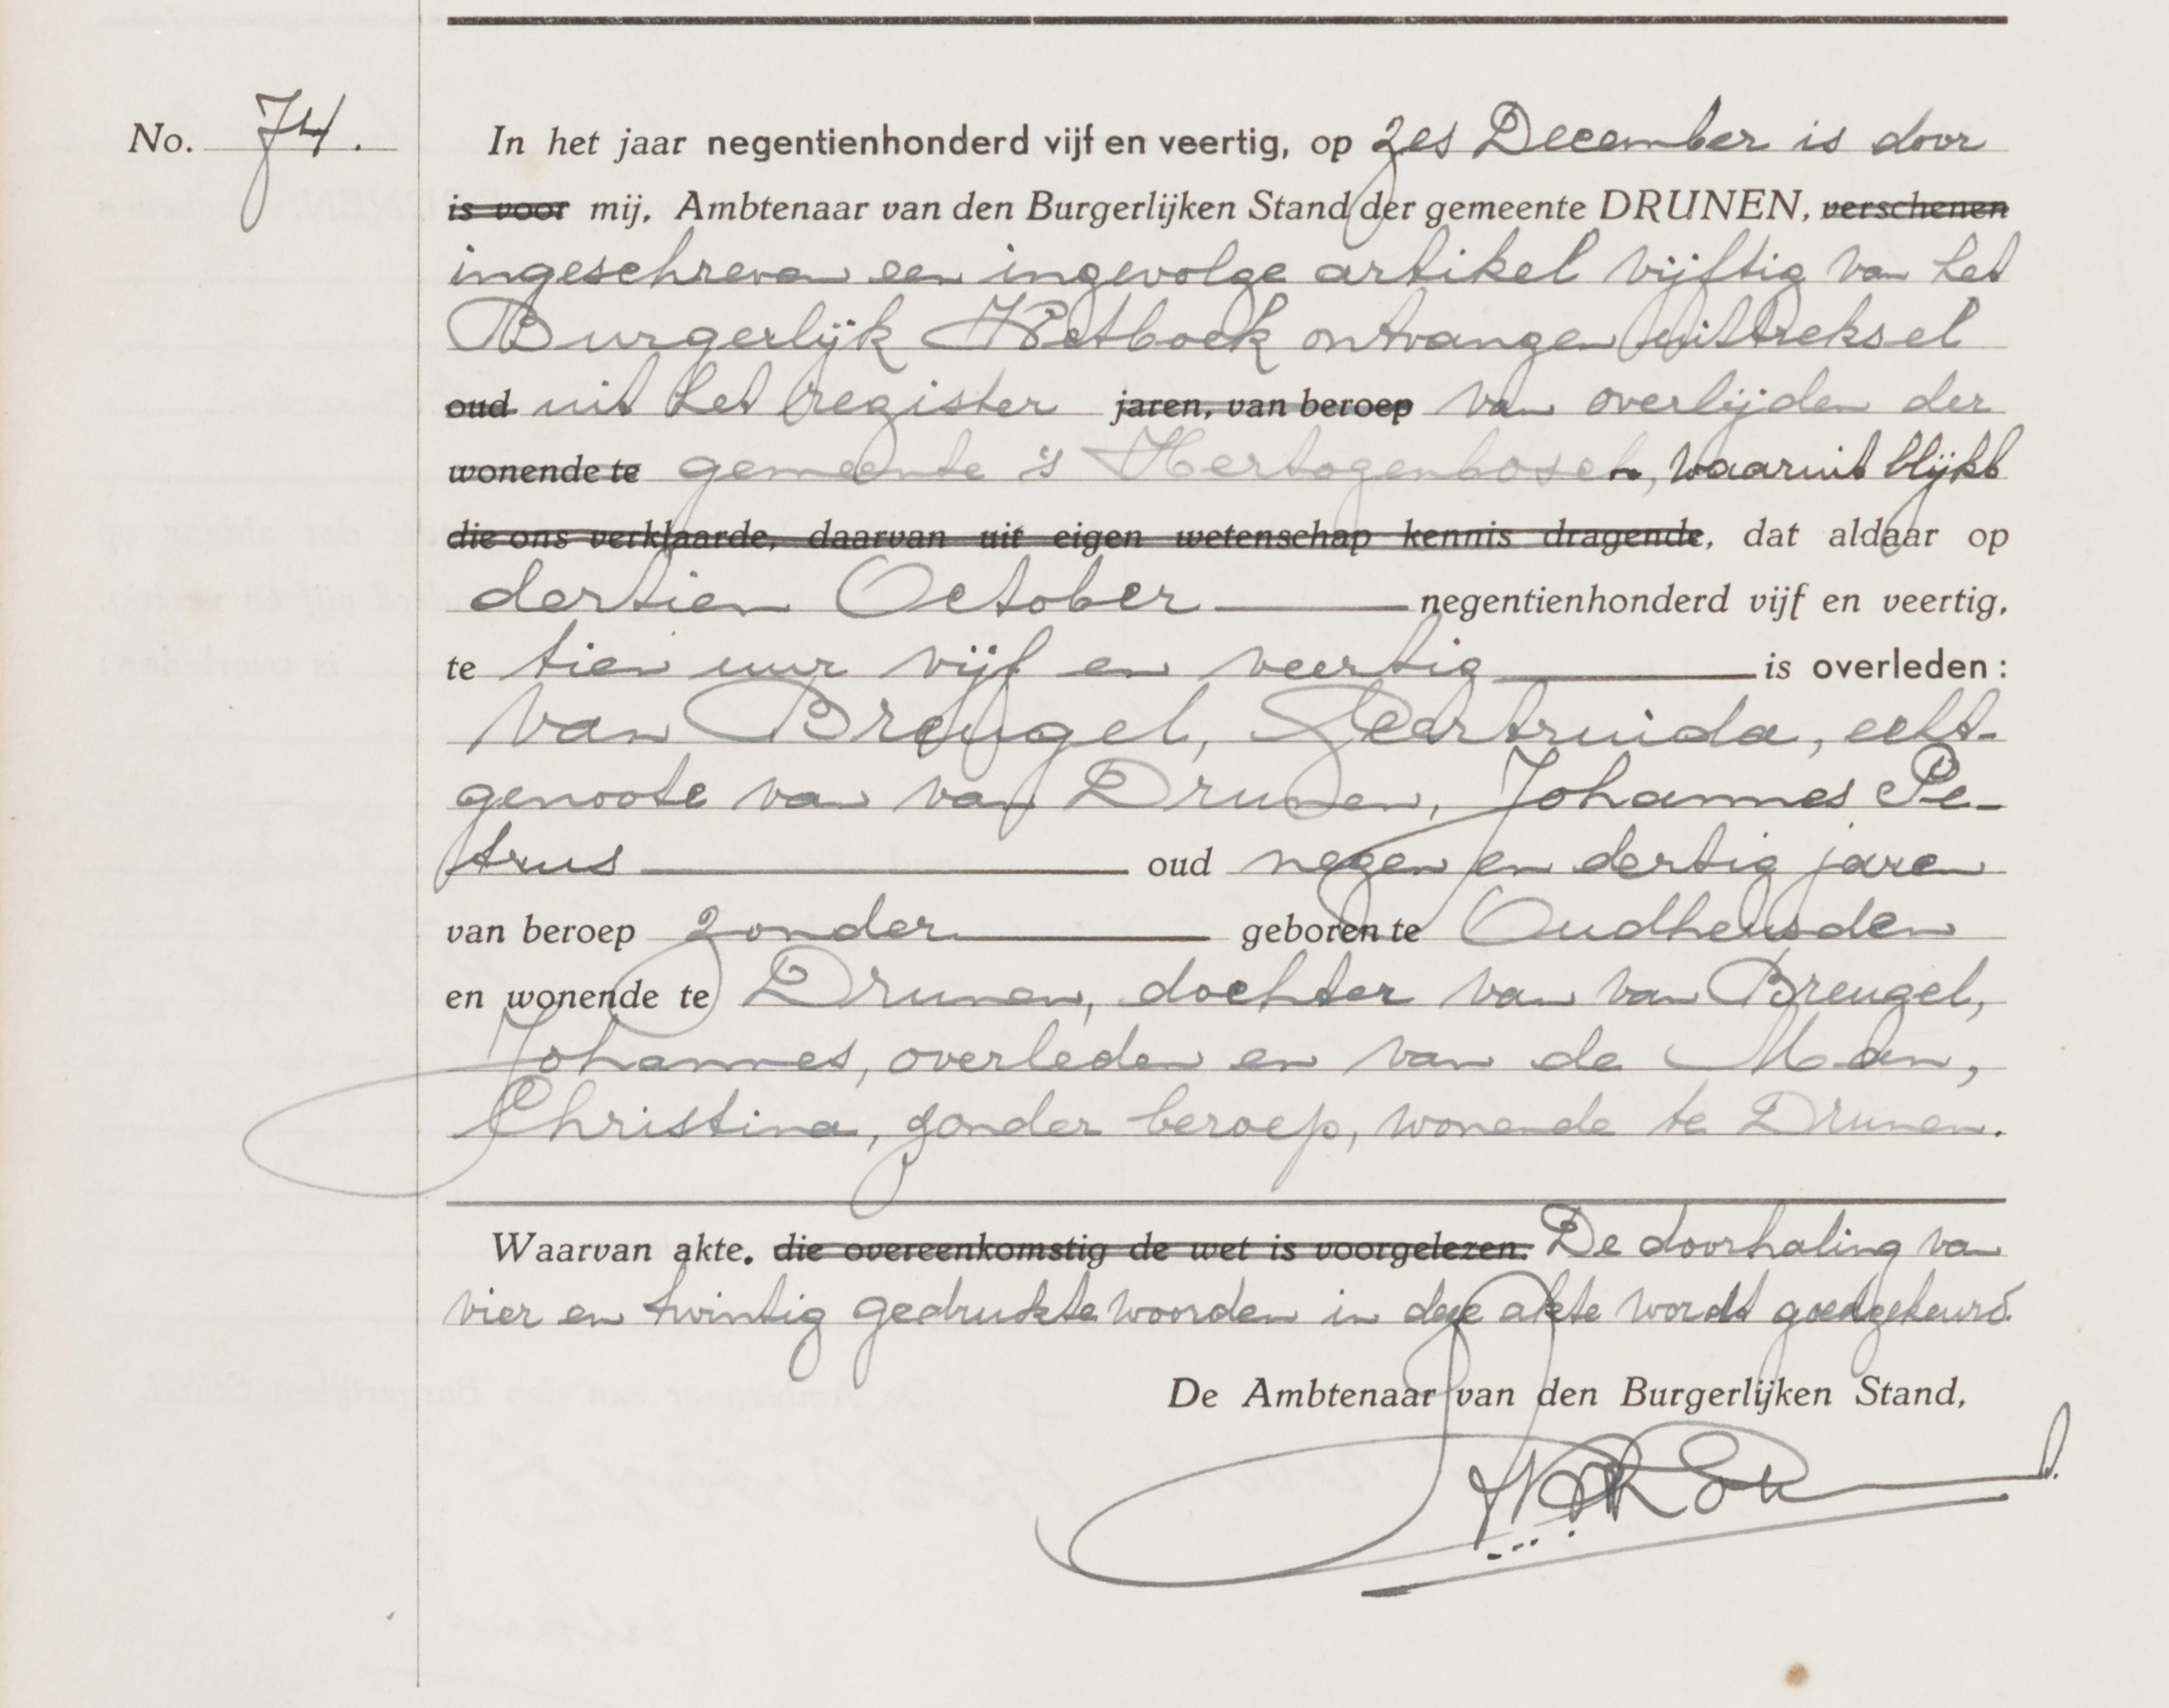 No. 74. In het jaar negentienhonderd vijf en veertig, op zes December is door
is voor mij, Ambtenaar van den Burgerlijken Stand der gemeente DRUNEN, verschenen
ingeschreven een ingevolge artikel vijftig van het
Burgerlijk Wetboek ontvangen uittreksel
oud uit het register jaren, van beroep van overlijden der
wonende te gemeente 's Hertogenbosch, waaruit blijkt
die ons verklaarde, daarvan uit eigen wetenschap kennis dragende, dat aldaar op
dertien October negentienhonderd vijf en veertig,
te tien uur vijf en veertig is overleden:
van Breugel, Geertruida, echt-
genoote van van Drunen, Johannes Pe-
trus oud negen en dertig jaren
van beroep zonder geboren te Oudheusden
en wonende te Drunen, dochter van van Breugel,
Johannes, overleden en van de Man,
Christina, zonder beroep, wonende te Drunen.
Waarvan akte, die overeenkomstig de wet is voorgelezen. De doorhaling van
vier en twintig gedrukte woorden in deze akte wordt goedgekeurd.
De Ambtenaar van den Burgerlijken Stand,